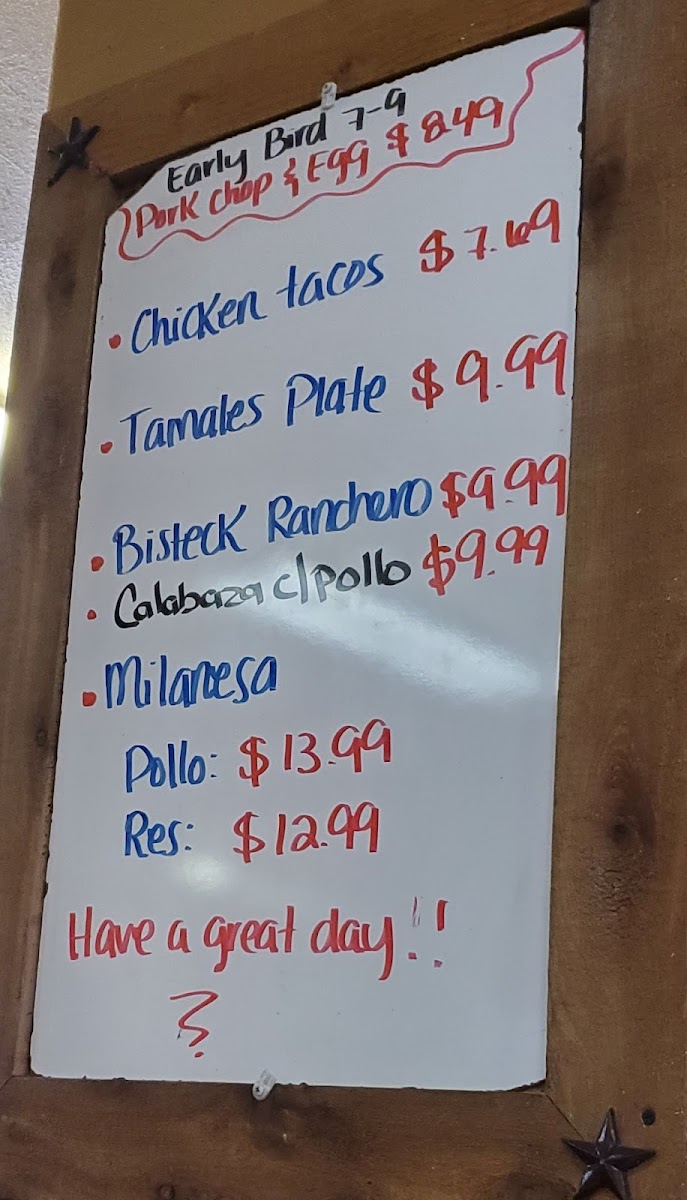 Early Bird 7-9
Pork Chop & Egg $8.49
• Chicken tacos $7.69
• Tamales Plate $9.99
• Bisteck Ranchero $9.99
• Calabaza c/pollo $9.99
• Milanesa
Pollo: $13.99
Res: $12.99
Have a great day!!
?